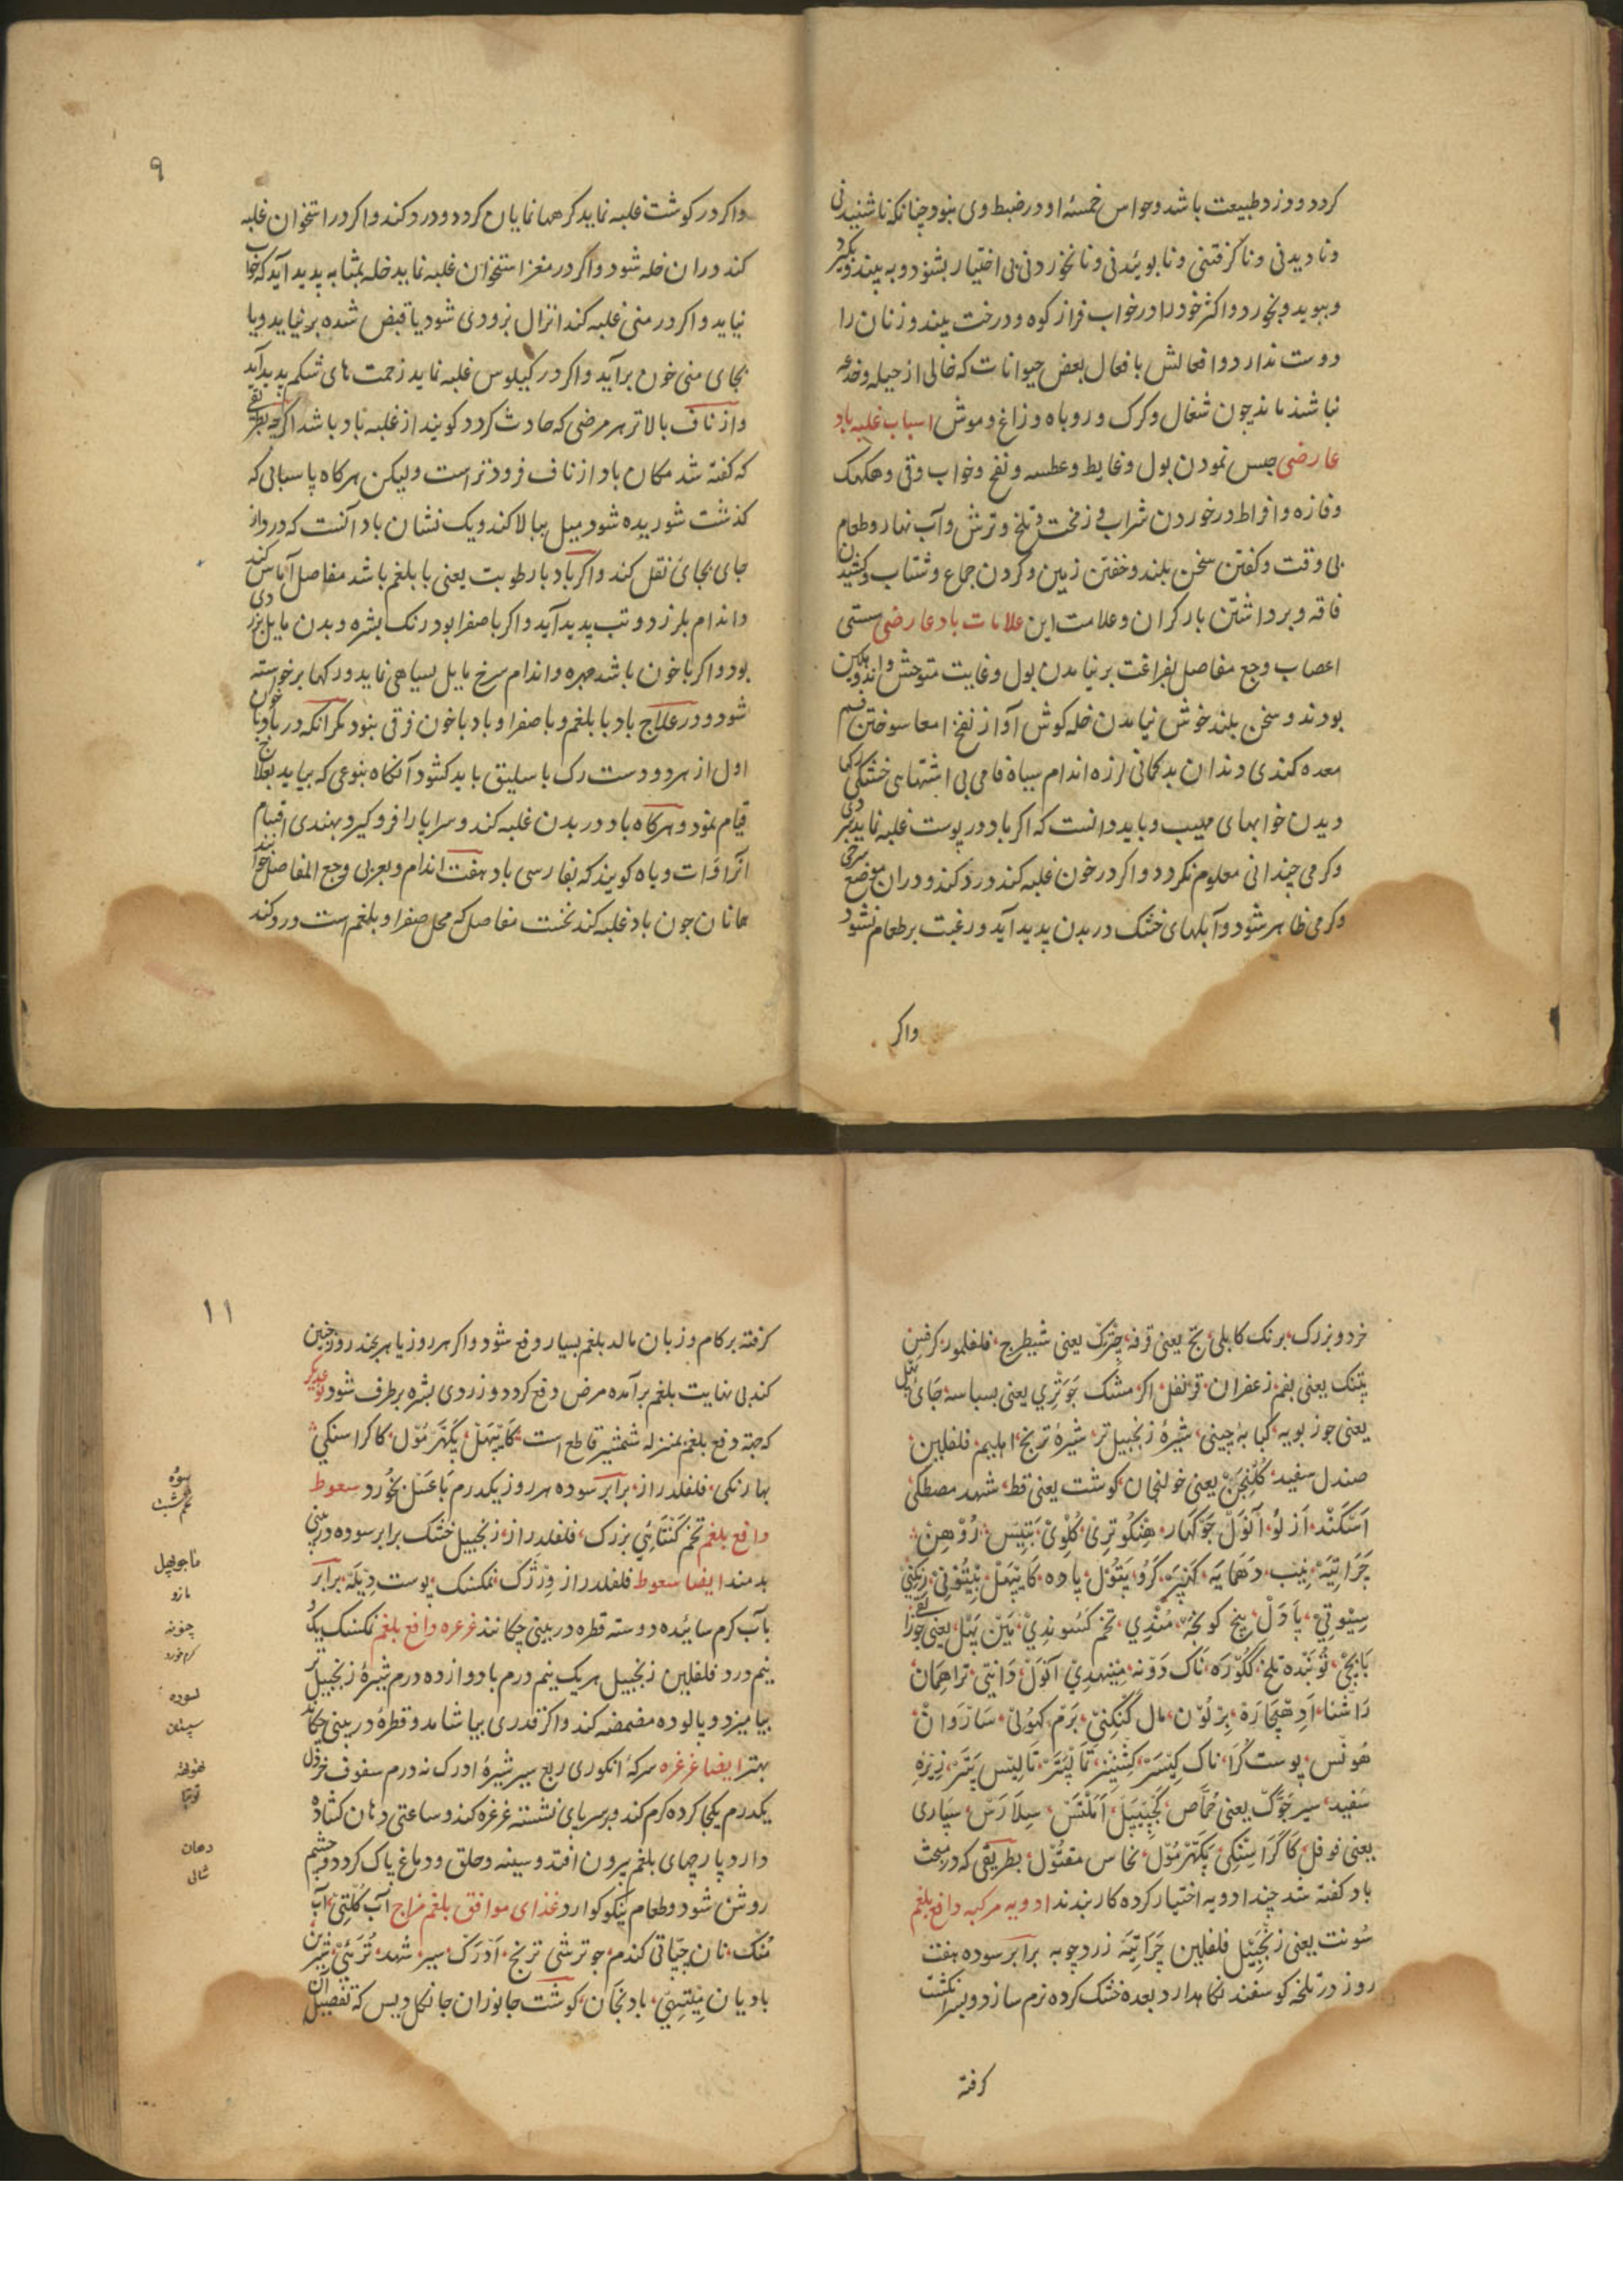 کردد و زود طبیعت باشد و حواس خمسهٔ او در ضبط وی نبود چنانکه ناشنیدنی
و نادیدنی و ناکرفتنی و نابوئیدنی و ناخوردنی بی اختیار بشنود و به بیند و بکیرد
و ببوید و بخورد و اکثر خود را در خواب فراز کوه و درخت بیند و زنان را
دوست ندارد و افعالش بافعال بعض حیوانات که خالی از حیله و خدعه
نباشند ماند چون شغال و کرک و روباه و زاغ و موش اسباب غلبه باد
عارضی حبس نمودن بول و غایط و عطسه و نفخ و خواب و قی و هکهک
و فازه و افراط در خوردن شراب و زمخت و تلخ و ترش و آب نهار و طعام
بی وقت و کفتن سخن بلند و خفتن زمین و کردن جماع و شتاب و کشیدن
فاقه و برداشتن بار کران و علامت این علامات باد عارضی سستی
اعصاب وجع مفاصل بفراغت برنیامدن بول و غایت متوحش و اندوهکین
بودند و سخن بلند خوش نیامدن خله کوش آواز نفخ امعا سوختن فم
معده کندی دندان بدکمانی لرزه اندام سیاه فامی بی اشتهایی خشکی
دیدن خوابهای مهیب و باید دانست که اکر باد در پوست غلبه نماید
و کرمی چندانی معلوم نکردد و اکر در خون غلبه کند درد کند و دران موضع سرخی
و کرمی ظاهر شود و آبلهای خشک در بدن پدید آید و رغبت بر طعام نشود
واکر
۹
واکر در کوشت غلبه نماید کرهها نمایان کردد و درد کند و اکر در استخوان غلبه
کند دران خله شود و اکر در مغز استخوان غلبه نماید خله بمثابه پدید آید که خواب
نیاید و اکر در منی غلبه کند انزال بزودی شود یا قبض شده برنیاید و یا
بجای منی خون برآید و اکر در کیلوس غلبه نماید زحمت های شکم پدید آید
و از ناف بالاتر هر مرضی که حادث کردد کویند از غلبه باد باشد اکرچه بطریقی
که کفته شد مکان باد از ناف فرودتر است ولیکن هرکاه پاسبانی که
کذشت شوریده شود میل ببالا کند و یک نشان باد آنست که در واز
جای بجای نقل کند و اکر باد با رطوبت یعنی با بلغم باشد مفاصل آماس کند
و اندام بلرزد و تب پدید آید و اکر با صفرا بود رنک بشره و بدن مایل بزردی
بود و اکر با خون باشد چهره و اندام سرخ مایل بسیاهی نماید و رکها برخواسته
شود و در علاج باد با بلغم و با صفرا و باد با خون فرقی نبود مکر آنکه در باد با خون
اول از هر دو دست رک باسلیق باید کشود آنکاه بنوعی که بیاید بعلاج
قیام نمود و هرکاه باد در بدن غلبه کند و سراپا را فرو کیرد بهندی اقسام
آنرا وات ویاه کویند که بفارسی باد هفت اندام و بعربی وجع المفاصل خوانند
همانان چون باد غلبه کند نخست مفاصل که محل صفرا و بلغم است درد کند
خرد و بزرک، برنک کابلی، بچ یعنی قرفه، چترک یعنی شیطرج، فلفلمور، کرفس
پتنک یعنی بقم زعفران، قرنفل، اکر، مشک، جوتری یعنی بسباسه، جای پهل
یعنی جوز بویه، کبابه چینی، شیرهٔ زنجبیل تر، شیرهٔ ترنج، اهلیم، فلفلین،
صندل سفید، کلنجن یعنی خولنجان، کوشت یعنی قط، شهد، مصطکی
اسکند، ازلو، آنول، جوکهار، هنکوتری، کلوی، بتیس، روهن،
چرایته، نیب، دهمایه، کرو، پتول، پاده، کایپهل،
سیوتی، پادل، بیخ کونچه، مندی، تخم کنسوندی، مین پهل، یعنی جوز القی
بابچی، تونبه تلخ، ککوره، ناک دونه، مینهدی، آنول، دانتی، تراهمان
راشنا، برلون، مال کنکنی، برم، کهولی، ساروان،
هوئس، پوست کرا، ناک کیسر، کشنیز، تالیس پتر، زیره
سفید، سیر، جوک یعنی حماض، کجپیپل، املتس، سلارس، سپاری
یعنی فوفل، کاکراسنکی، پکهرمول، نحاس مقتول، بطریقی که در مبحث
باد کفته شد چند ادویه اختیار کرده کار بندند ادویه مرکبه دافع بلغم
سونت یعنی زنجبیل فلفلین چرایته زردچوبه برابر سوده هفت
روز در تلخه کوسفند نکاهدارد بعده خشک کرده نرم سازد و بسر انکشت
کرفته
۱۱
کرفته بر کام و زبان مالد بلغم بسیار دفع شود و اکر هر روز یا هر چند روز چنین
کند بی نهایت بلغم برآمده مرض دفع کردد و زردی بشره برطرف شود نوعدیکر
که جهة دفع بلغم بمنزله شمشیر قاطع است، کایپهل، پکهرمول، کاکراسنکی،
بهارنکی، فلفلدراز، برابر سوده هر روز یکدرم با عسل بخورد سعوط
دافع بلغم تخم کنتائی بزرک، فلفلدراز، زنجبیل خشک برابر سوده در بینی
بدمند ایضا سعوط فلفلدراز ورثرک، نمکسنک، پوست ریته، برابر
بآب کرم سائیده دو سته قطره در بینی چکانند غرغره دافع بلغم نمکسنک یکدو
نیم درد فلفلین زنجبیل هریک نیم درم با دوازده درم شیرهٔ زنجبیل تر
بیامیزد و پالوده مضمضه کند و اکر قدری بیاشامد و قطرهٔ در بینی چکاند
بهتر ایضا غرغره سرکهٔ انکوری ربع سیر شیرهٔ ادرک نه درم سفوف خردل
یکدرم یکجا کرده کرم کند و بر سر پای نشسته غرغره کند و ساعتی دهان کشاده
دارد پارچهای بلغم بیرون افتد و سینه و حلق و دماغ پاک کردد و چشم
روشن شود و طعام نیکو کوارد غذای موافق بلغم مزاج آب کلتی، آب
منک، نان چپاتی کندم، جو ترشی ترنج، ادرک، سیر، شهد، ترئی،
بادیان میتهی، بادنجان، کوشت جانوران جانکل دیس که تفصیل آن
سوه
تخم شبت
ماجوپهل
مازو
چونه
لسوره
سپستان
دهان
شالی